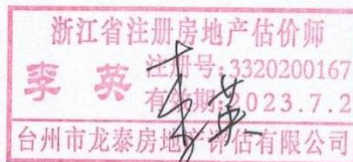 浙江省注册房地产估价师
李英 注册号:3320200167
有效期:2023.7.2
台州市龙泰房地产评估有限公司
李英